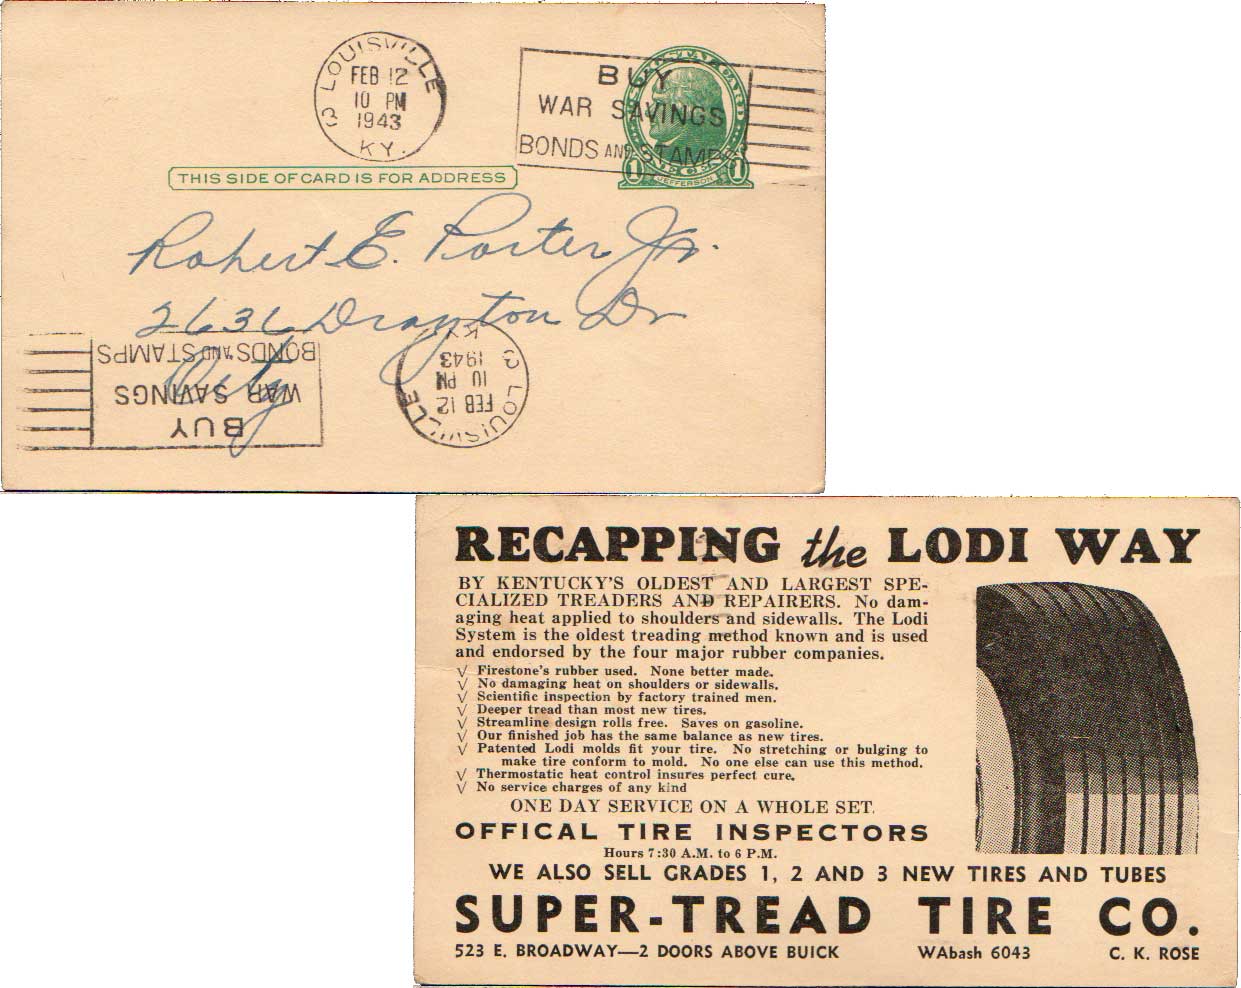 LOUISVILLE
FEB 12
10 PM
1943
KY.
3
BUY
WAR SAVINGS
BONDS AND STAMPS
U.S. POSTAL CARD
1 CENT 1
JEFFERSON
THIS SIDE OF CARD IS FOR ADDRESS
Robert E. Porter Jr.
2636 Drayton Dr
City
BUY
WAR SAVINGS
BONDS AND STAMPS
LOUISVILLE
FEB 12
10 PM
1943
KY.
3
RECAPPING the LODI WAY
BY KENTUCKY'S OLDEST AND LARGEST SPE-
CIALIZED TREADERS AND REPAIRERS. No dam-
aging heat applied to shoulders and sidewalls. The Lodi
System is the oldest treading method known and is used
and endorsed by the four major rubber companies.
√ Firestone's rubber used. None better made.
√ No damaging heat on shoulders or sidewalls.
√ Scientific inspection by factory trained men.
√ Deeper tread than most new tires.
√ Streamline design rolls free. Saves on gasoline.
√ Our finished job has the same balance as new tires.
√ Patented Lodi molds fit your tire. No stretching or bulging to
make tire conform to mold. No one else can use this method.
√ Thermostatic heat control insures perfect cure.
√ No service charges of any kind
ONE DAY SERVICE ON A WHOLE SET.
OFFICAL TIRE INSPECTORS
Hours 7:30 A.M. to 6 P.M.
WE ALSO SELL GRADES 1, 2 AND 3 NEW TIRES AND TUBES
SUPER-TREAD TIRE CO.
523 E. BROADWAY—2 DOORS ABOVE BUICK WAbash 6043 C. K. ROSE